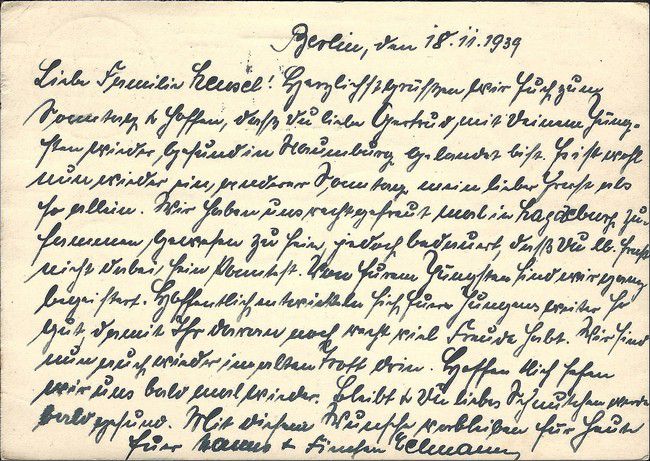 Berlin, den 18.11.1939
Liebe Familie Hensel! Herzlichst grüßen wir Euch zum
Sonntag & hoffen, daß Du liebe Gertrud, mit Deinem Jüng-
sten wieder gesund in Naumburg gelandet bist. Es ist wohl
nun wieder ein anderer Sonntag, mein lieber Ernst als
so allein. Wir haben uns recht gefreut mal in Magdeburg zu-
sammen gewesen zu sein, jedoch bedauert, daß Du lb. Ernst
nicht dabei sein konntest. Von Eurem Jüngsten sind wir ganz
begeistert. Hoffentlich entwickeln sich Eure Jungens weiter so
gut damit Ihr daran noch recht viel Freude habt. Wir sind
nun auch wieder im alten Trott drin. Hoffentlich sehen
wir uns bald mal wieder. Bleibt & Du liebes Schnutchen werde
bald gesund. Mit diesem Wunsche verbleiben für heute
Euer Hanns & Finchen Ellmann